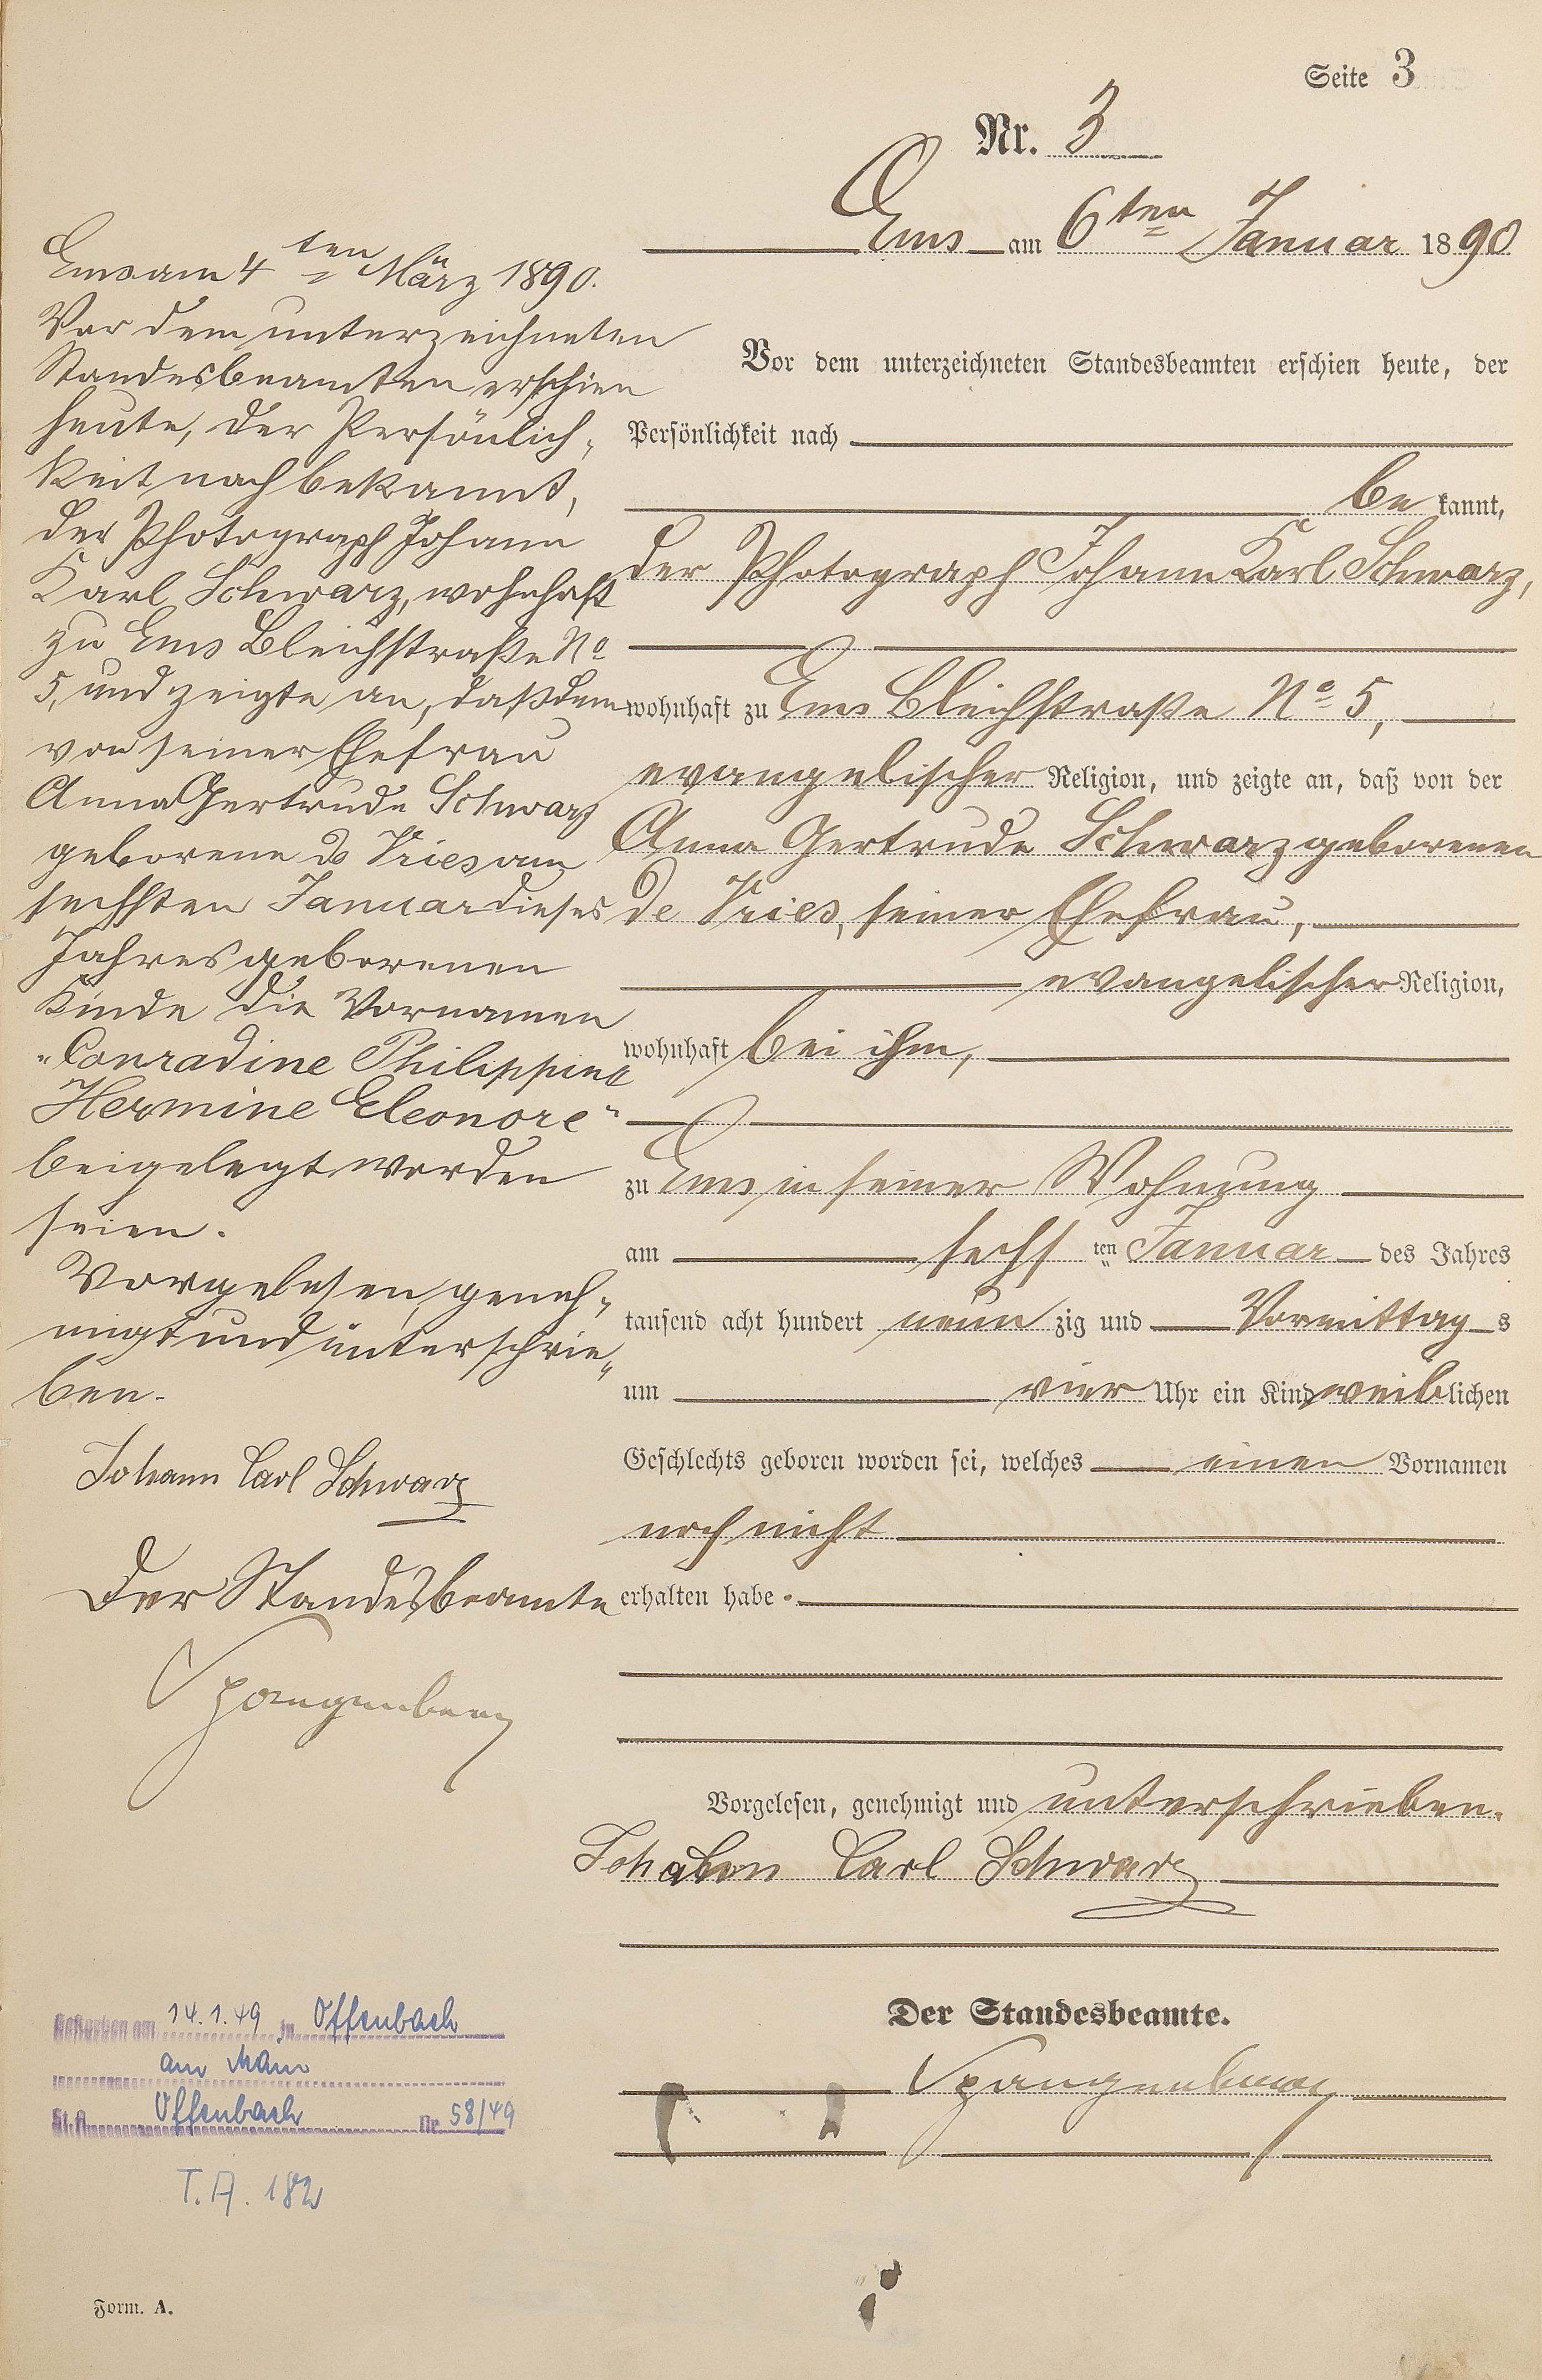 Seite 3
Nr. 3
Ems am 6ten Januar 1890
Vor dem unterzeichneten Standesbeamten erschien heute, der
Persönlichkeit nach
be kannt,
der Photograph Johann Karl Schwarz,
wohnhaft zu Ems Bleichstraße No 5,
evangelischer Religion, und zeigte an, daß von der
Anna Gertrude Schwarz geborenen
de Vries, seiner Ehefrau,
evangelischer Religion,
wohnhaft bei ihm,
zu Ems in seiner Wohnung
am sechs ten Januar des Jahres
tausend acht hundert neun zig und Vormittag s
um vier Uhr ein Kind weib lichen
Geschlechts geboren worden sei, welches einen Vornamen
noch nicht
erhalten habe.
Vorgelesen, genehmigt und unterschrieben.
Johann Carl Schwarz
Der Standesbeamte.
Spangenberg
Ems am 4ten März 1890.
Vor dem unterzeichneten
Standesbeamten erschien
heute, der Persönlich-
keit nach bekannt,
der Photograph Johann
Karl Schwarz, wohnhaft
zu Ems Bleichstraße No
5, und zeigte an, daß dem
von seiner Ehefrau
Anna Gertrude Schwarz
geborene de Vries am
sechsten Januar dieses
Jahres geborenen
Kinde die Vornamen
„Conradine Philippine
Hermine Eleonore“
beigelegt worden
seien.
Vorgelesen, geneh-
migt und unterschrie-
ben.
Johann Carl Schwarz
Der Standesbeamte
Spangenberg
Gestorben am 14.1.49 in Offenbach
am Main
St.A. Offenbach Nr. 58/49
T.A. 182
Form. A.